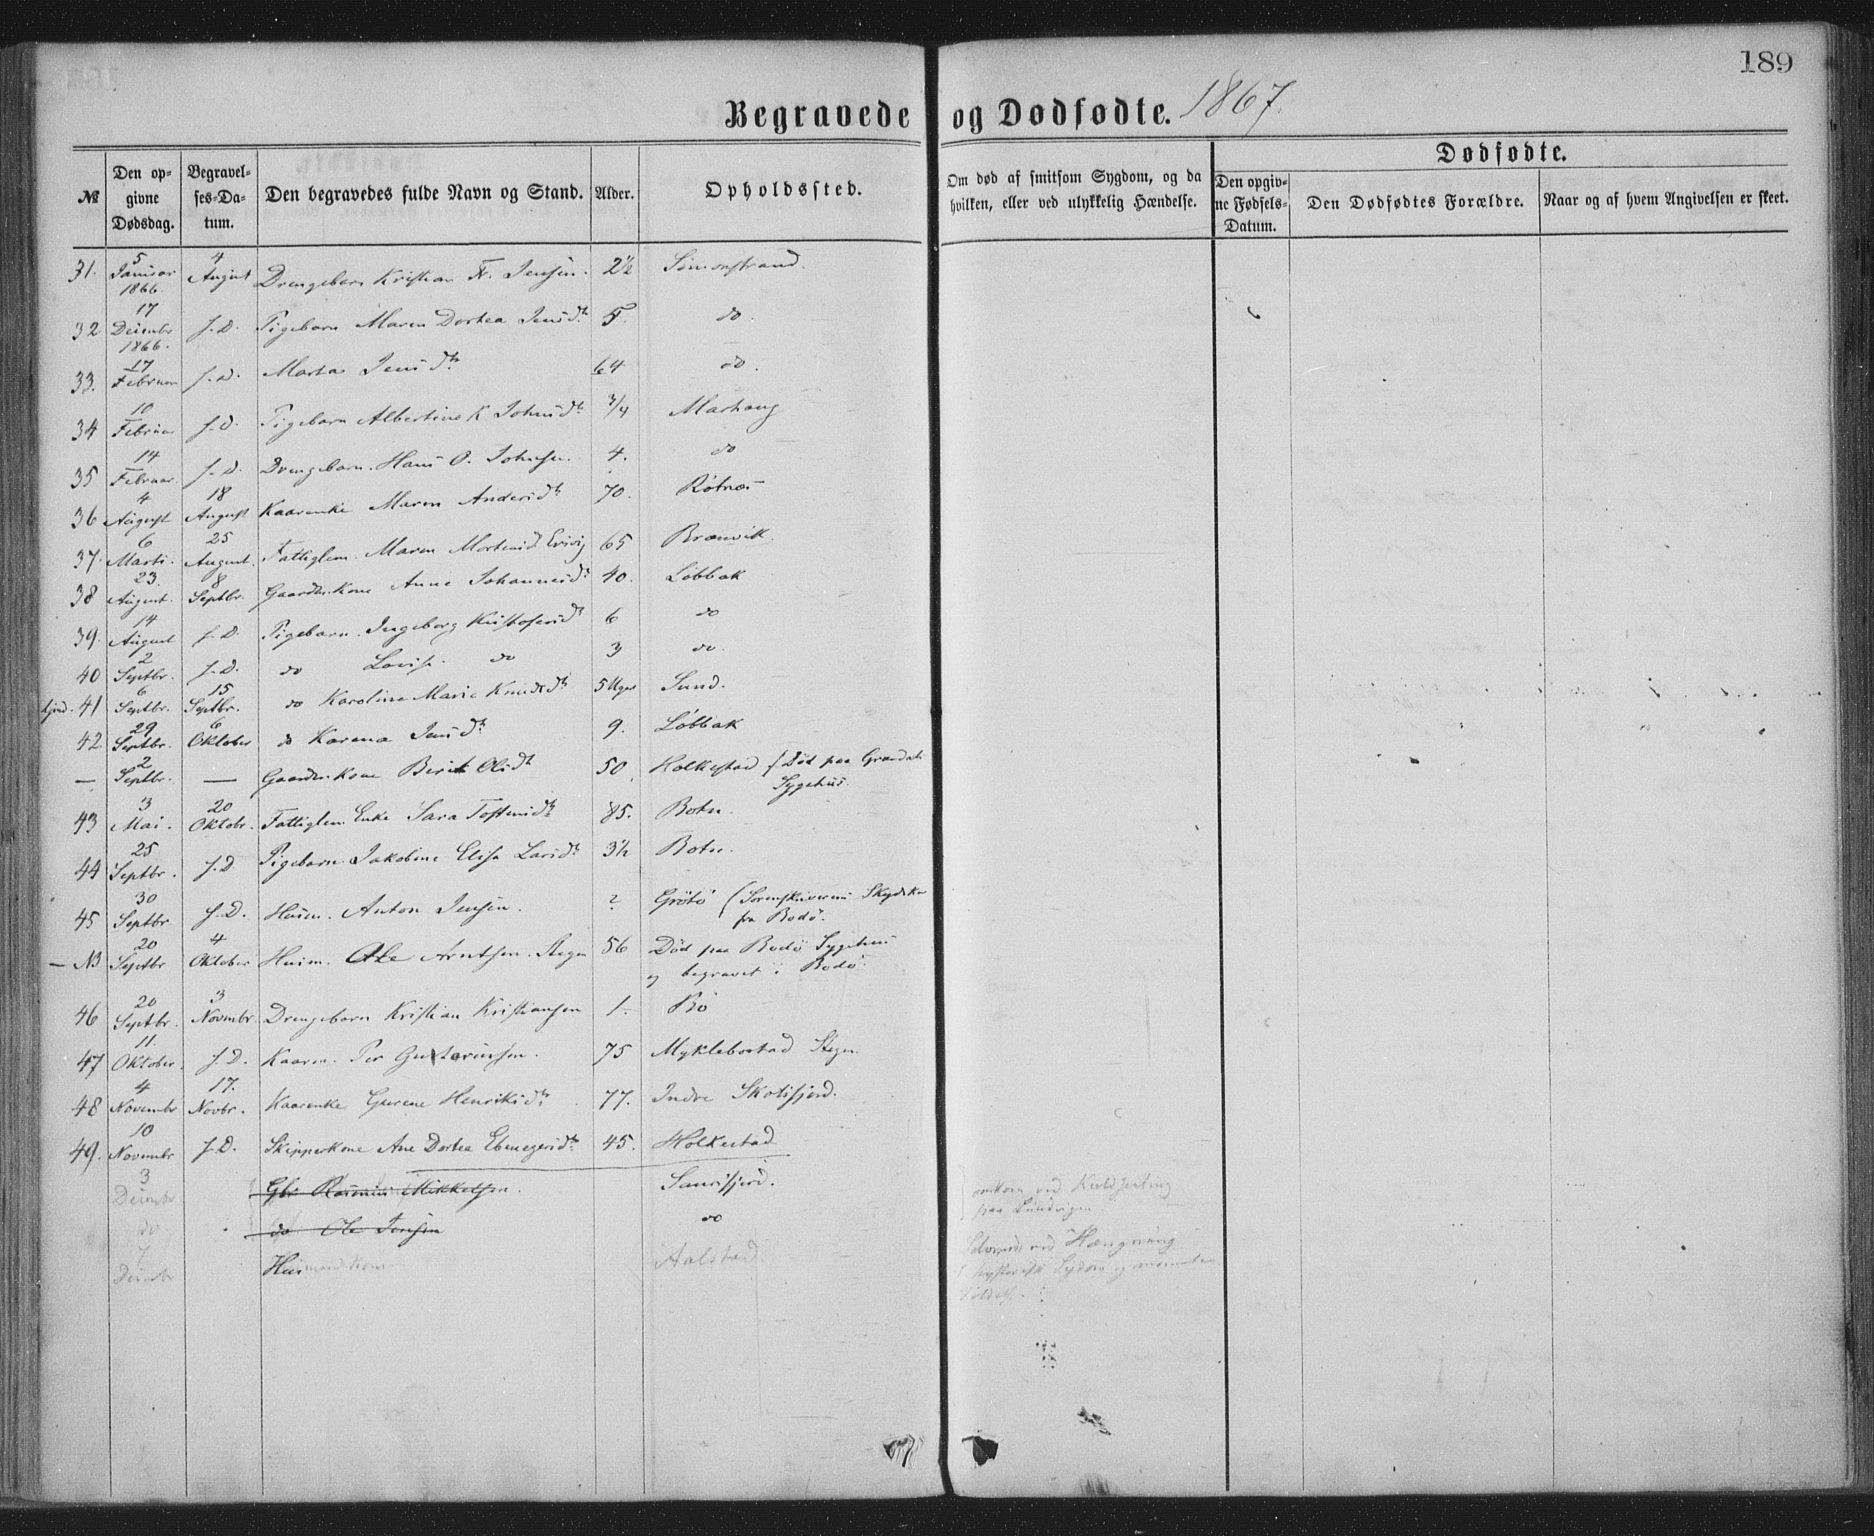 189
Begravede og Dødfødte. 1867.
№
Den opgivne Dødsdag.
Begravelses-Datum.
Den begravedes fulde Navn og Stand.
Alder.
Opholdssted.
Om død af smitsom Sygdom, og da hvilken, eller ved ulykkelig Hændelse.
Dødfødte.
Den opgivne Fødsels-Datum.
Den Dødfødtes Forældre.
Naar og af hvem Angivelsen er skeet.
31. 5 Januar 1866. 4 August Drengebarn Kristian Fr. Jensen. 2½ Simonstrand.
32 17 Decembr 1866. s. D. Pigebarn Maren Dortea Jensdtr 5. do.
33. 17 Februar s. D. Marta Jensdtr 64 do.
34 10 Februar s. D. Pigebarn Albertine K Johnsdtr 3/4 Marhaug
35 14 Februar. s. D. Drengebarn. Hans O. Johnsen. 4. do
36 4 August 18 August Kaarenke Maren Andersdtr 70. Røtnæs
37. 6 Marts. 25 August. Fattiglem. Maren Mortensd 65 Brænvik.
38 23. August. 8 Septbr. Gaardm.kone Anne Johannesdtr 40. Løbbak
39. 14 August s. D. Pigebarn. Ingeborg Kristofersdtr 6 do
40 2 Septbr. s. D. do Lovise. do 3 do.
41 6 Septbr. 15 Septbr. do Karoline Marie Knudsdtr 5 Uger Sund.
42 29 Septbr. 6 Oktober do Karena Jensdtr 9. Løbbak
— 2 Septbr. — Gaardm.kone Berit Olsdtr 50. Holkestad (Død paa
Sygehus.
43 3 Mai. 20 Oktobr. Fattiglem Enke Sara Tostensdtr 85. Botn.
44 25 Septbr. s. D Pigebarn. Jakobine Elisa Larsdtr 3½ Botn.
45 30 Septbr. s. D. Husm. Anton Jensen. ? Grøtø (Sorenskriverens
fra Bodø.
— NB 20 Septbr 4 Oktober Husm. Ole Arntsen. Stegen 56 Død paa Bodø Sygehus
og begravet i Bodø.
46 20 Septbr. 3 Novembr. Drengebarn Kristian Kristiansen 1. Bø
47 11. Oktober. s. D. Kaarm. Per Gunnariussen. 75 Myklebostad Stegen
48 4 Novembr 17. Novbr. Kaarenke Gurene Henriksdtr 77. Indre Skotsfjord.
49. 10 Novembr s. D. Skipperkone Ane Dortea Ebenezersdtr 45. Holkestad
3 Decembr Gbr Rasmus Mikkelsen. Saursfjord. omkom ved Kuldseiling
paa
do do Ole Jensen do
7 Decembr Husmandskone Aalstad Selvmord ved Hængning